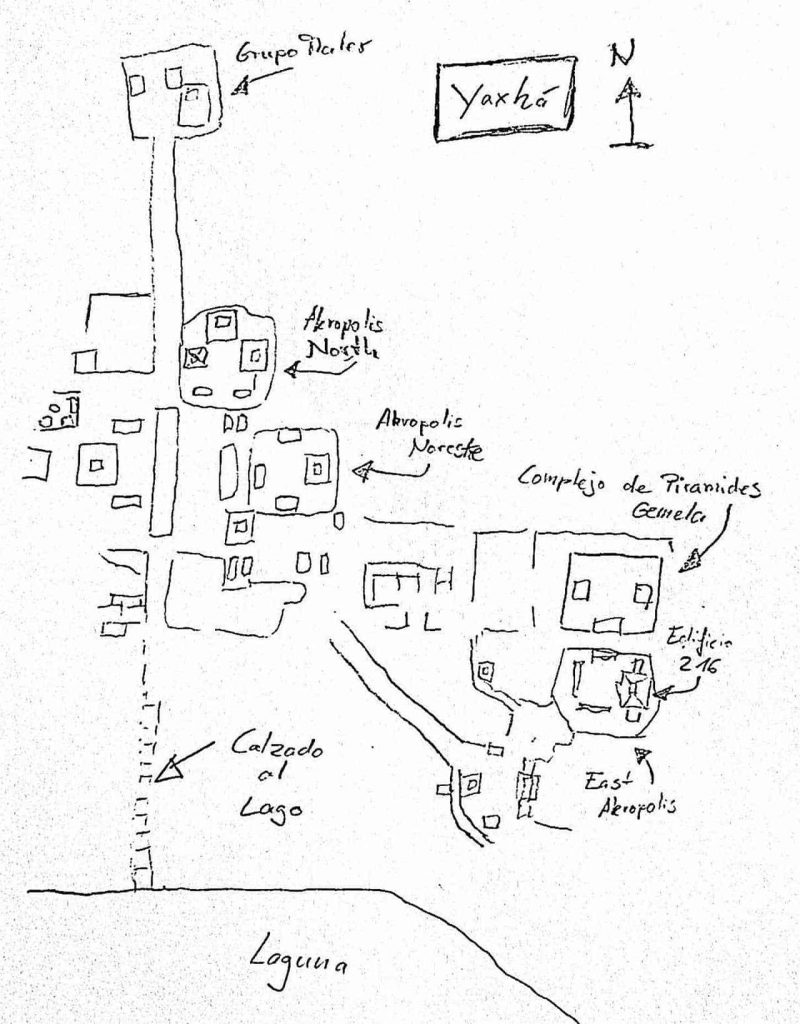 Grupo Maler
Yaxhá
N
Akropolis
North
Akropolis
Noreste
Complejo de Piramides
Gemela
Edificio
216
Calzado
al
Lago
East
Akropolis
Laguna